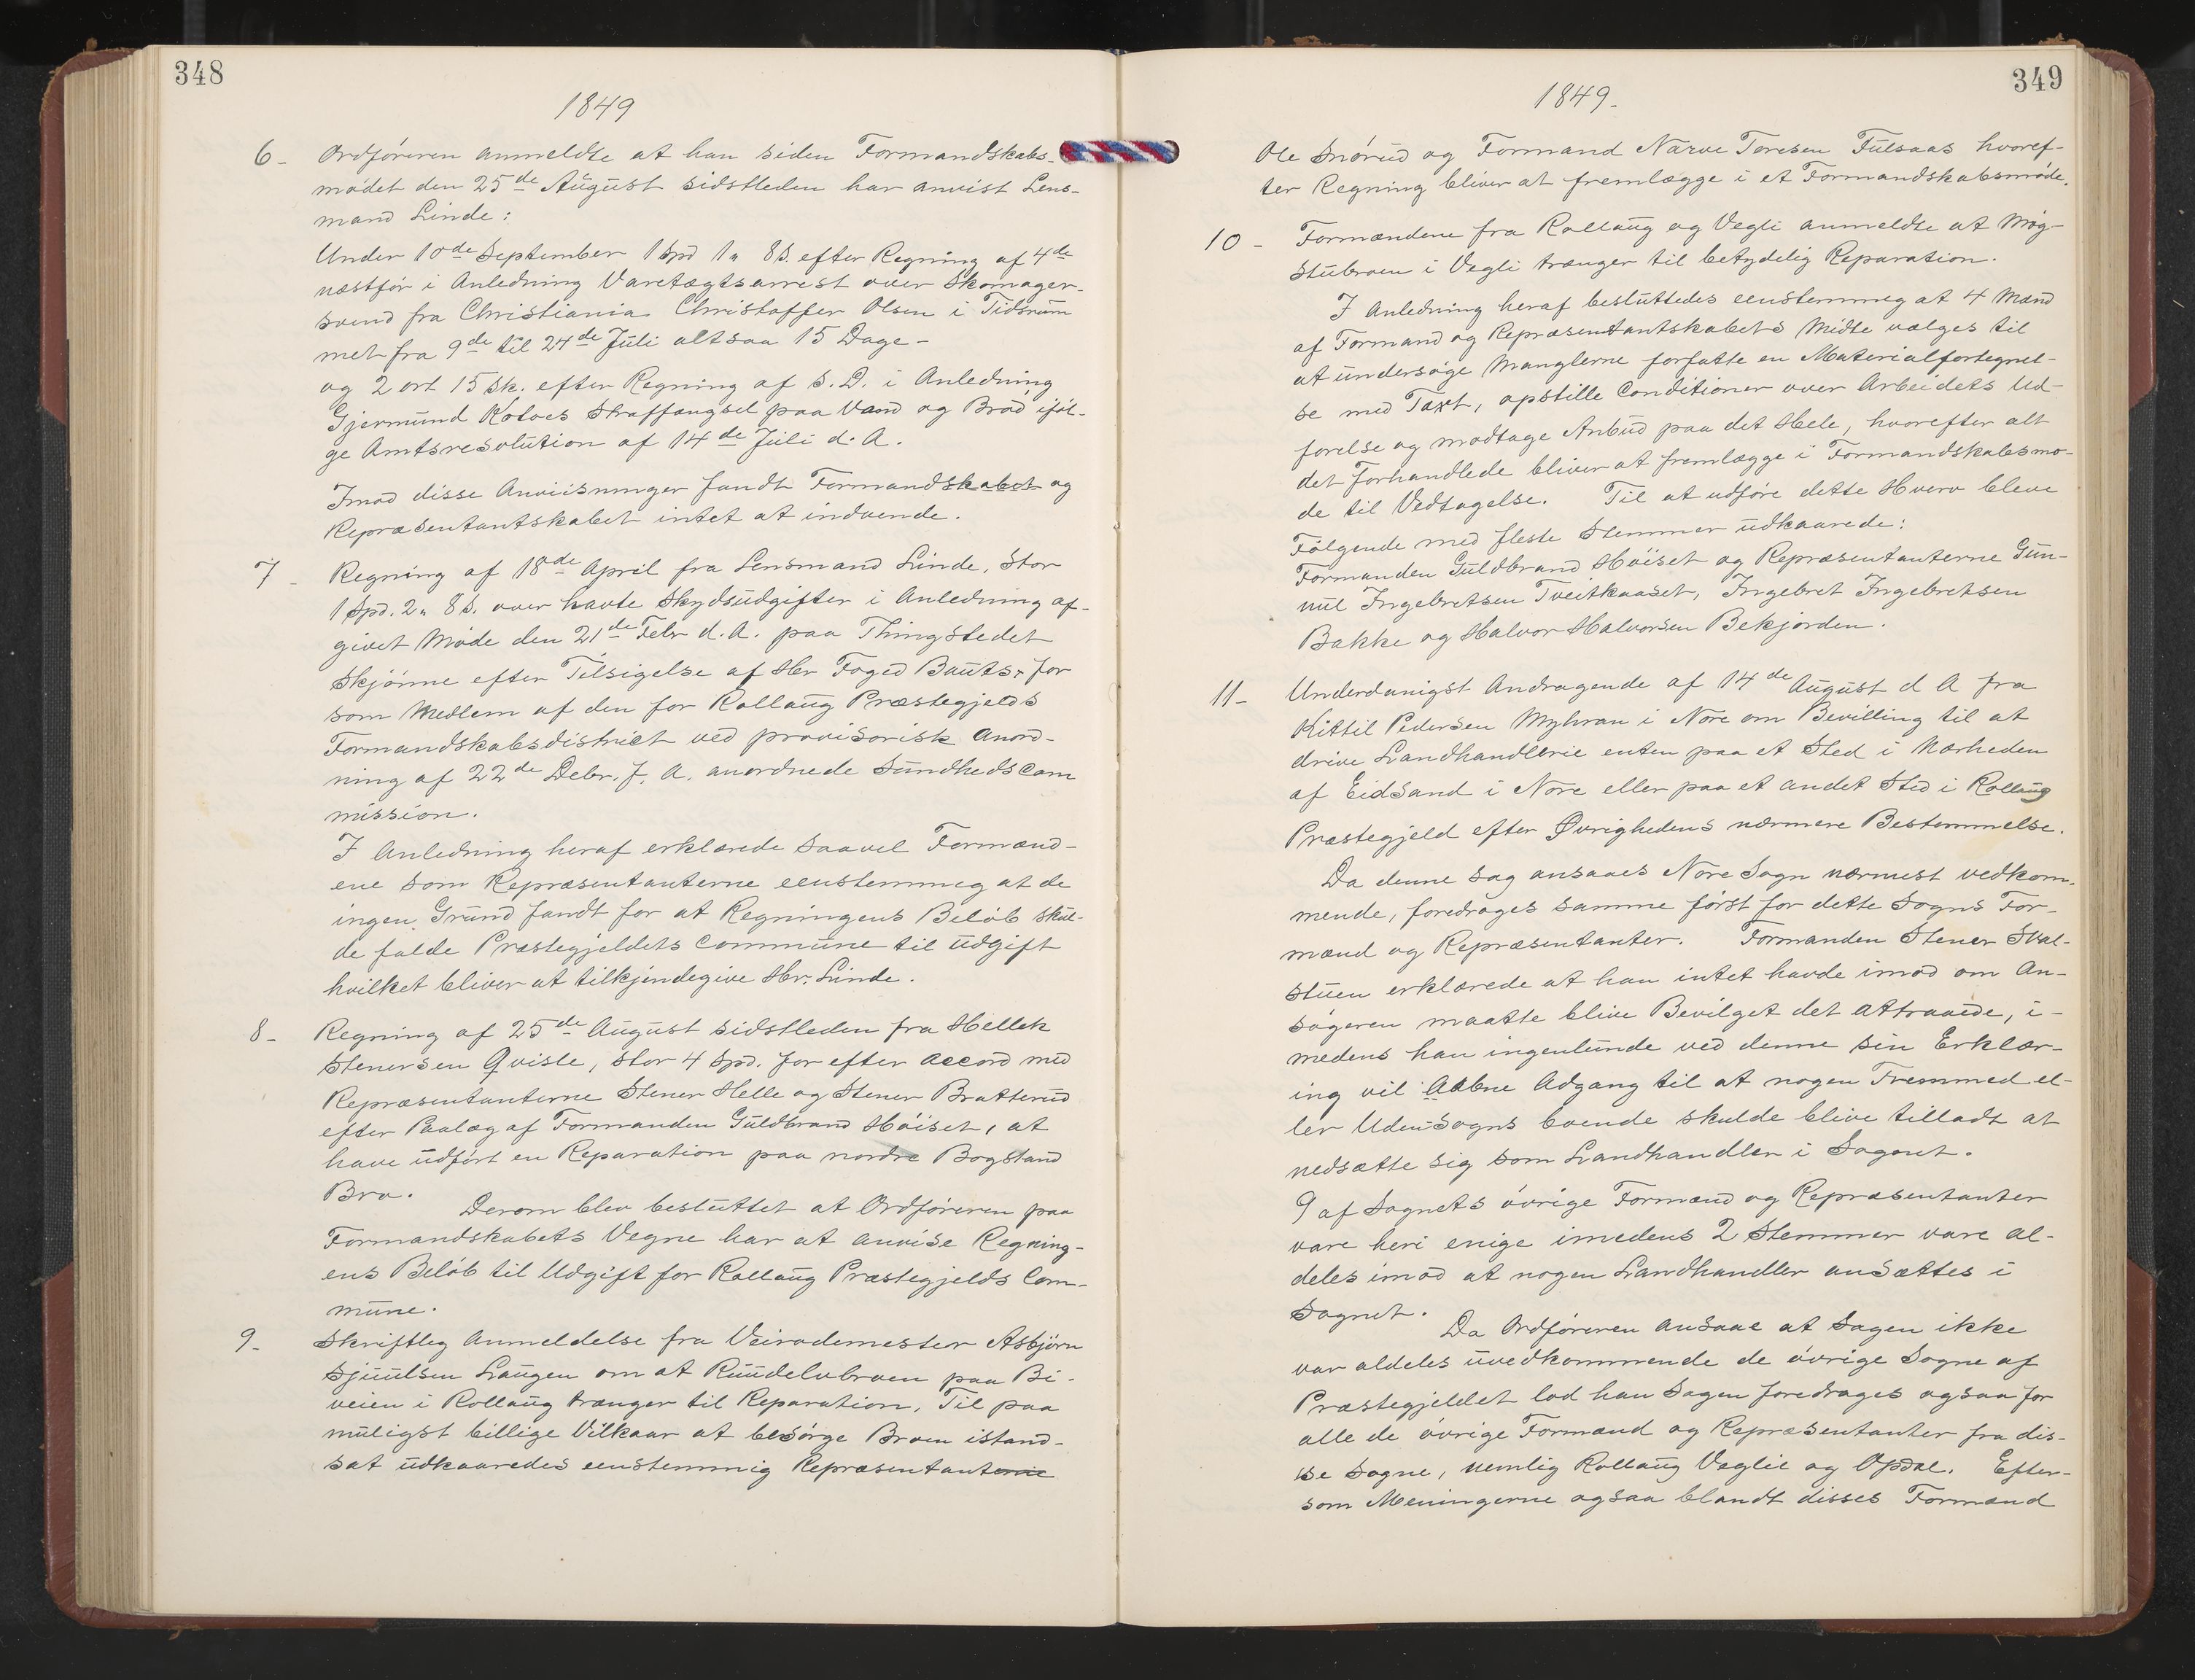 348
1849
6- Ordføreren anmeldte at han siden Formandskabs-
mødet den 25de August sidstleden har anvist Lens-
mand Linde:
Under 10de September 1 Spd 1" 8 s. efter Regning af 4de
næstfør i Anledning Varetægtsarrest over Skomager-
svend fra Christiania Christoffer Olsen i Tidsrum
met fra 9de til 24de Juli altsaa 15 Dage-
og 2 ort 15 sk. efter Regning af s. D. i Anledning
Gjermund Straffængsel paa Vand og Brød iføl-
ge Amtsresolution af 14de Juli d. A.
Imod disse Anviisninger fandt Formandskabet og
Repræsentantskabet intet at indvende.
7- Regning af 18de April fra Lensmand Linde, Stor
1 Spd. 2" 8 s. over havte Skydsudgifter i Anledning af-
givet Møde den 21de Febr d. A. paa Thingstedet
Skjønne efter Tilsigelse af Hr Foged Bauts- for
som Medlem af den for Rollaug Præstegjelds
Formandskabsdistrict ved provisorisk Anord-
ning af 22de Debr. f. A. anordnede Sundhedscom
mission.
I Anledning heraf erklærede saavel Formænd-
ene som Repræsentanterne eenstemmeg at de
ingen Grund fandt for at Regningens Beløb skul-
de falde Præstegjeldets Commune til Udgift
hvilket bliver at tilkjendegive Hr. Linde.
8- Regning af 25de August sidstleden fra Hellek
Stenersen Qvisle, stor 4 Spd. for efter Accord med
Repræsentanterne Stener Helle og Stener Bratterud
efter Paalæg af Formanden Guldbrand Høiset, at
have udført en Reparation paa nordre Bogstand
Bro.
Derom blev besluttet at Ordføreren paa
Formandskabets Vegne har at anvise Regning-
ens Beløb til Udgift for Rollaug Præstegjelds Com-
mune.
9- Skriftleg Anmeldelse fra Veirodemester Asbjørn
Sjuulsen Laugen om at Ruudelvbroen paa Bi-
veien i Rollaug trænger til Reparation. Til paa
muligst billige Vilkaar at besørge Broen istand-
sat udkaaredes eenstemmig Repræsentanterne
349
1849-
Ole Smørud og Formand Narve Toresen Fulsaas hvoref-
ter Regning bliver at fremlægge i et Formandskabsmøde.
10- Formændene fra Rollaug og Vegli anmeldte at Mog-
stubroen i Vegli trænger til betydelig Reparation.
I Anledning heraf besluttedes eenstemmeg at 4 Mænd
af Formand og Repræsentantskabets Midte vælges til
at undersøge Manglerne forfatte en Materialfortegnel-
se med Taxt, opstille Conditioner over Arbeidets Ud-
førelse og modtage Anbud paa det Hele, hvorefter alt
det Forhandlede bliver at fremlægge i Formandskabsmø-
de til Vedtagelse. Til at udføre dette Hverv bleve
Følgende med fleste Stemmer udkaarede:
Formanden Guldbrand Høiset og Repræsentanterne Gun-
nul Ingebretsen Tveitkaaset, Ingebret Ingebretsen
Bakke og Halvor Halvorsen Bekjorden.
11- Underdanigst Andragende af 14de August d A fra
Kittil Pedersen Myhran i Nore om Bevilling til at
drive Landhandlerie enten paa et Sted i Nærheden
af Eidsand i Nore eller paa et andet Sted i Rollaug
Præstegjeld efter Øvrighedens nærmere Bestemmelse.
Da denne Sag ansaaes Nore Sogn nærmest vedkom-
mende, foredrages samme først for dette Sogns For-
mænd og Repræsentanter. Formanden Stener Skal-
stuen erklærede at han intet havde imod om An-
søgeren maatte blive Bevilget det attraaede, i-
medens han ingenlunde ved denne sin Erklær-
ing vil Aabne Adgang til at nogen Fremmed el-
ler Uden Sogns boende skulde blive tilladt at
nedsætte sig som Landhandler i Sognet.
9 af Sognets øvrige Formænd og Repræsentanter
vare heri enige imedens 2 Stemmer vare al-
deles imod at nogen Landhandler ansættes i
Sognet.
Da Ordføreren ansaae at Sagen ikke
var aldeles uvedkommende de øvrige Sogne af
Præstegjeldet lod han Sagen foredrages ogsaa for
alle de øvrige Formænd og Repræsentanter fra dis-
se Sogne, nemlig Rollaug Veglie og Opdal. Efter-
som Meningerne ogsaa blandt disses Formænd